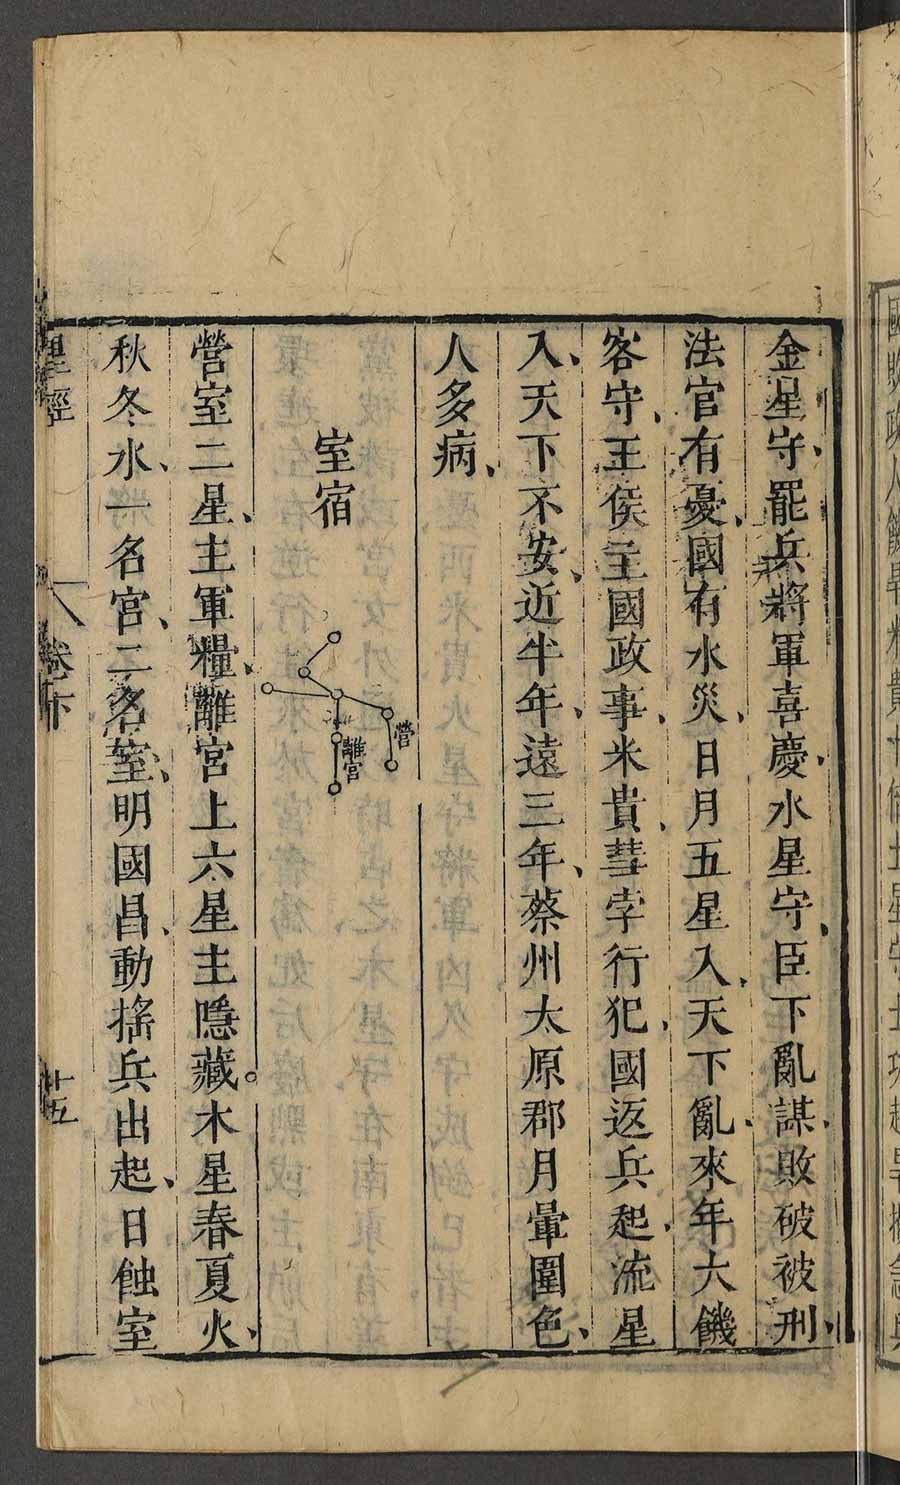 金星守、罷兵將軍喜慶、水星守、臣下亂謀、敗破被刑、
法官有憂、國有水災、日月五星入、天下亂、來年大饑
客守、王侯主國政事、米貴、彗孛行犯、國返兵起、流星
入、天下不安、近半年、遠三年、蔡州太原郡月暈圍色、
人多病、
室宿
營
離宮
營室二星、主軍糧、離宮上六星主隱藏。木星春夏火、
秋冬水、一名宮、二名室、明國昌、動搖兵出起、日蝕室
星經
卷下
十五